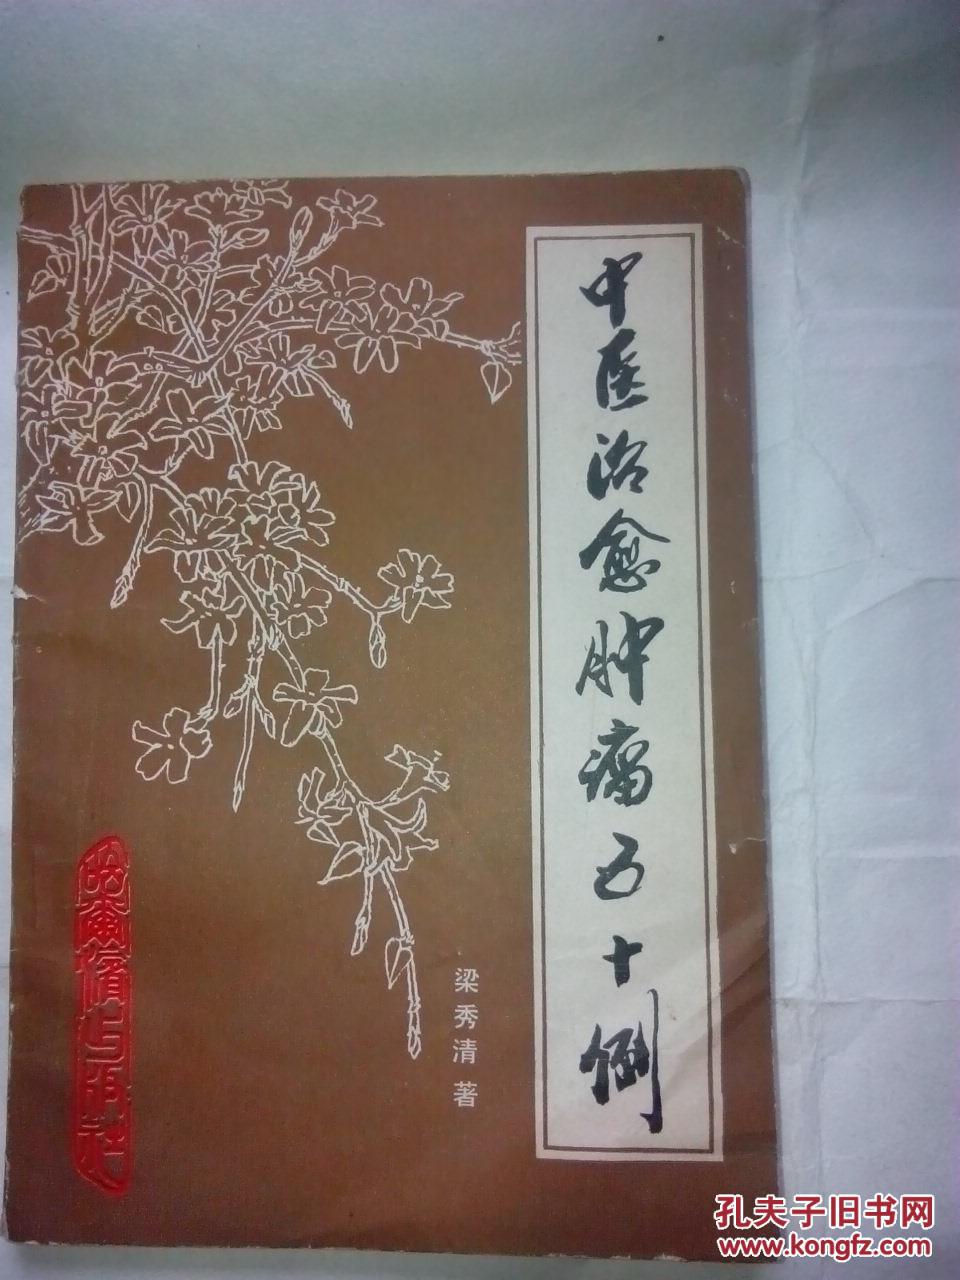 中医治愈肿瘤五十例
梁秀清 著
哈尔滨出版社
孔夫子旧书网
www.kongfz.com